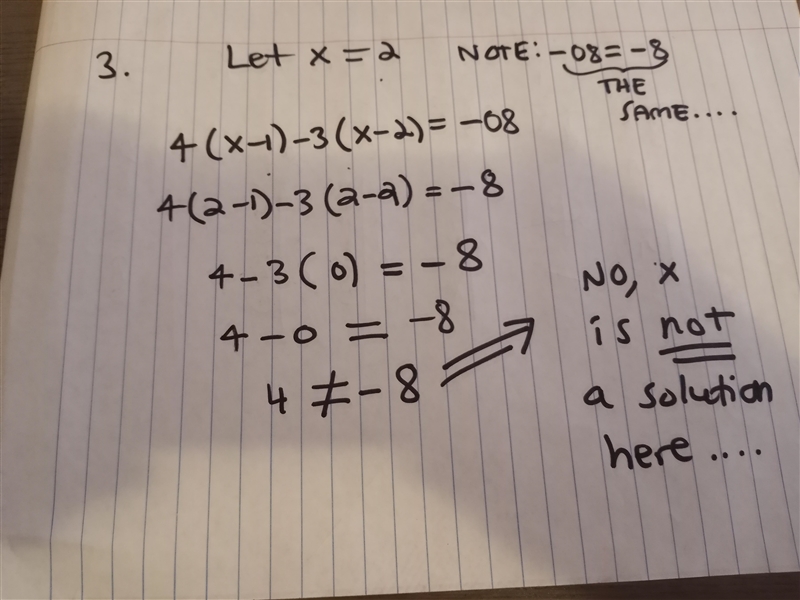 3. Let x = 2 NOTE: -08 = -8
THE
SAME....
4(x-1)-3(x-2) = -08
4(2-1)-3(2-2) = -8
4-3(0) = -8
4-0 = -8
4 ≠ -8
NO, x
is not
a solution
here ....